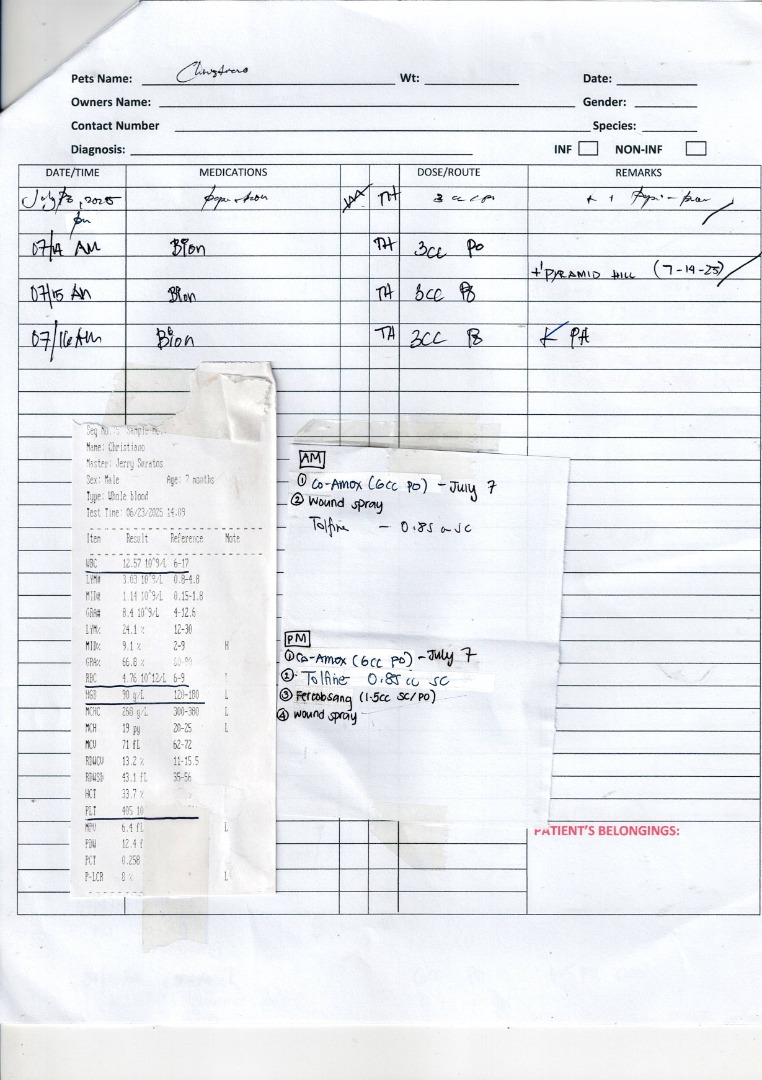 Pets Name: Wt: Date:
Owners Name: Gender:
Contact Number Species:
Diagnosis: INF NON-INF
DATE/TIME MEDICATIONS DOSE/ROUTE REMARKS
2025 TH 3 cc
07/14 AM Bion TH 3cc PO
+ PYRAMID HILL (7-14-25)
07/15 AM Bion TH 3cc PO
07/16 AM Bion TH 3cc PO
Name: Christiano
Master: Jerry
Sex: Male Age: 7 months
Type: Whole blood
Test Time: 06/23/2025 14:09
Item Result Reference Note
WBC 12.57 10^9/L 6-17
LYM# 3.03 10^9/L 0.8-4.8
MID# 1.14 10^9/L 0.15-1.8
GRA# 8.4 10^9/L 4-12.6
LYM% 24.1 % 12-30
MID% 9.1 % 2-9 H
GRA% 66.8 %
RBC 4.76 10^12/L 6-9
HGB 90 g/L 120-180 L
MCHC 268 g/L 300-380 L
MCH 19 pg 20-25 L
MCV 71 fL 62-72
RDWCV 13.2 % 11-15.5
RDWSD 43.1 fL 35-56
HCT 33.7 %
PLT 405 10
MPV 6.4 fL L
PDW 12.4 f
PCT 0.258
P-LCR 8 % L
AM
① Co-Amox (6cc PO) - July 7
② Wound spray
Tolfine - 0.85 cc SC
PM
① Co-Amox (6cc PO) - July 7
② Tolfine 0.85 cc SC
③ Fercobsang (1.5cc SC/PO)
④ Wound spray
PATIENT'S BELONGINGS: